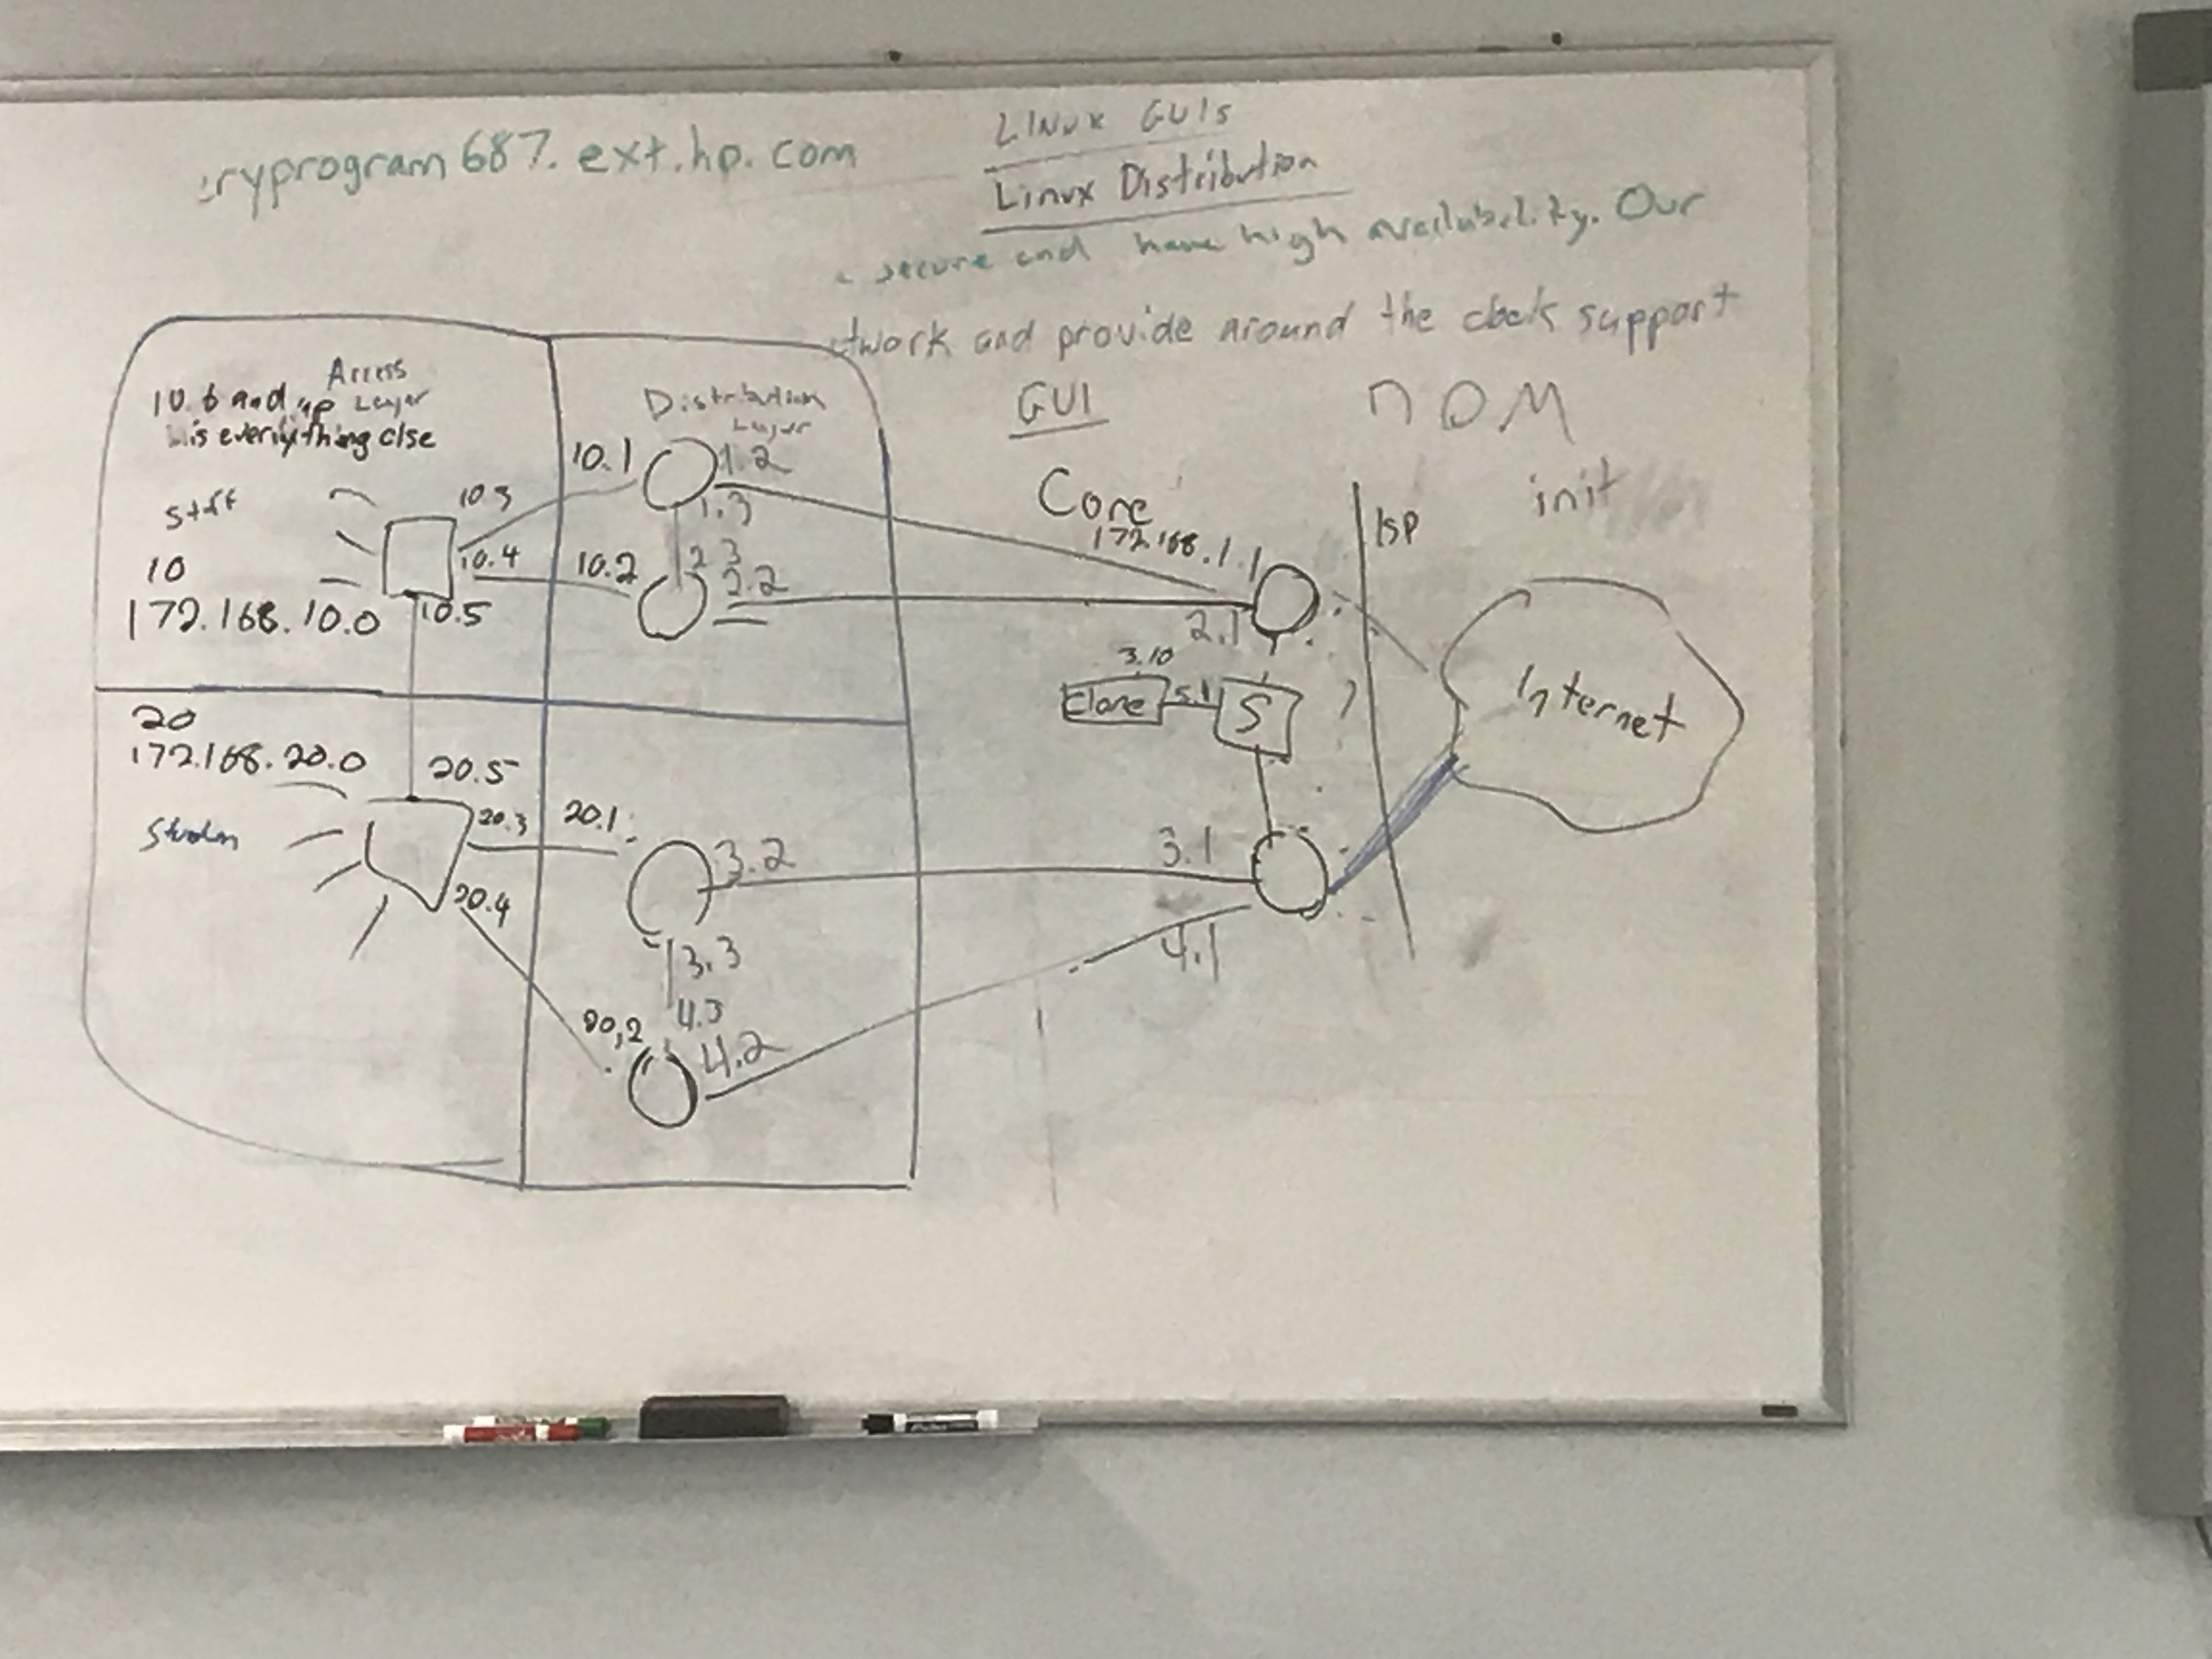 ryprogram687.ext.hp.com
LINUX GUIs
Linux Distribution
secure and have high availability. Our
twork and provide around the clock support
GUI
nom
init
Access
Layer
10.6 and up
is everything else
Distribution
Layer
Core
ISP
10.1
1.2
1.3
Staff
10.3
10.4
10.2
2.3
2.2
172.168.1.1
10
172.168.10.0
10.5
2.1
3.10
Clone
5.1
S
Internet
20
172.168.20.0
20.5
20.3
20.1
3.2
3.1
20.4
3.3
4.1
4.3
20,2
4.2